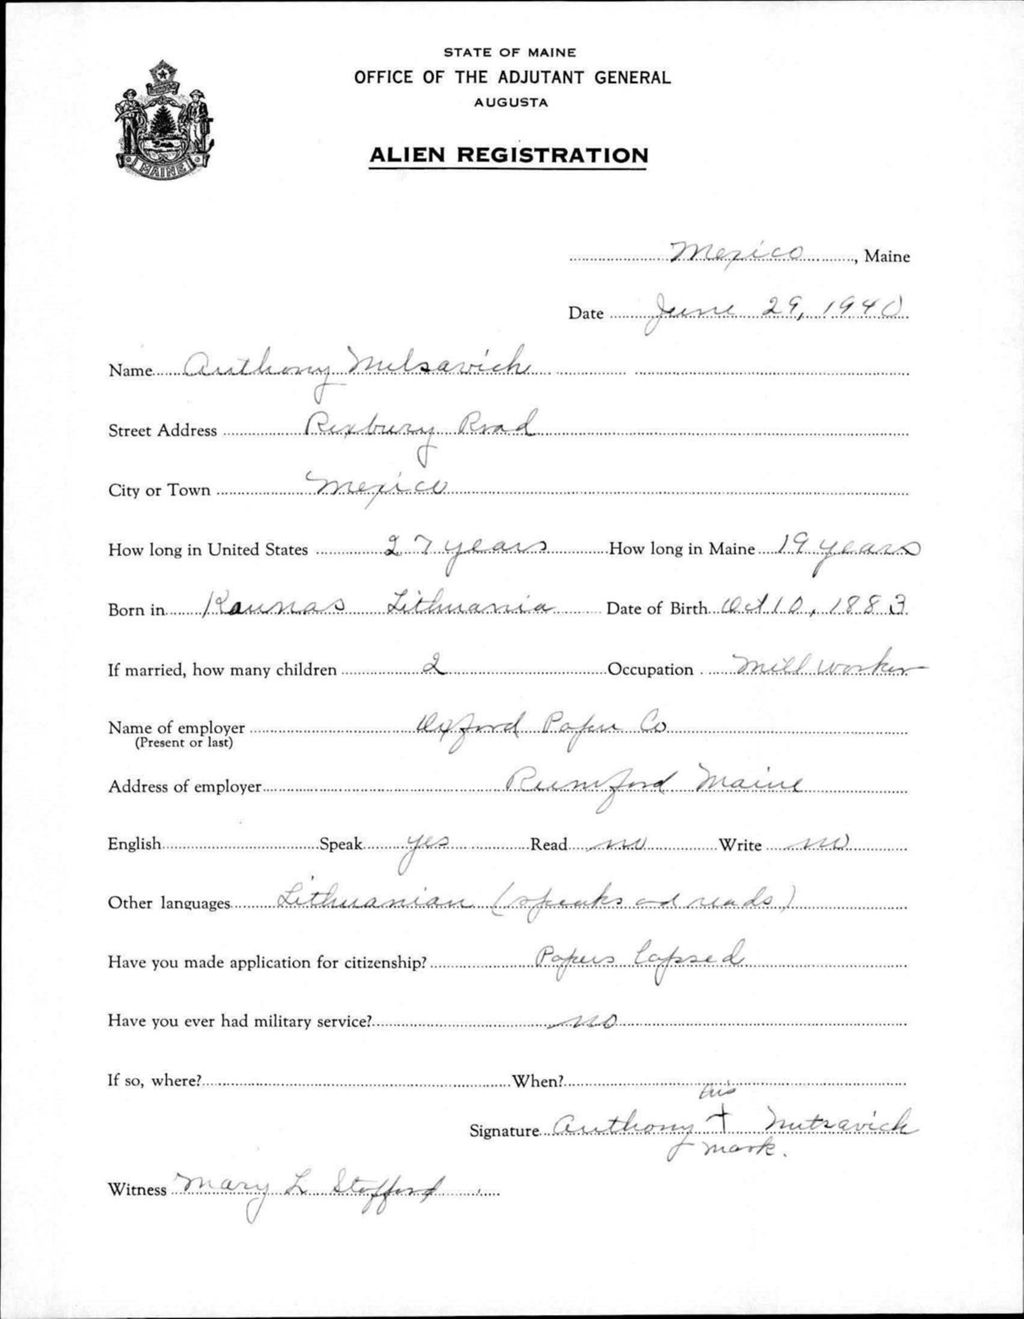 STATE OF MAINE
OFFICE OF THE ADJUTANT GENERAL
AUGUSTA
ALIEN REGISTRATION
MAINE
Mexico, Maine
Date June 29, 1940
Name Anthony
Street Address Roxbury Road
City or Town Mexico
How long in United States 27 years How long in Maine 19 years
Born in Kaunas Lithuania Date of Birth Oct 10, 1883
If married, how many children 2 Occupation Mill worker
Name of employer Oxford Paper Co
(Present or last)
Address of employer Rumford Maine
English Speak yes Read no Write no
Other languages Lithuanian (speaks and reads)
Have you made application for citizenship? Papers lapsed
Have you ever had military service? no
If so, where? When?
his
Signature Anthony + Mutsavich
mark.
Witness Mary L Stafford